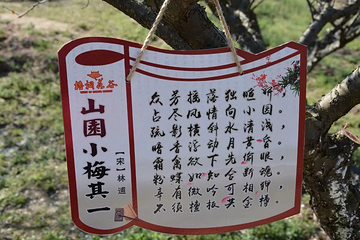 山園小梅其一
【宋】林逋
众芳摇落独暄妍，
占尽风情向小园。
疏影横斜水清浅，
暗香浮动月黄昏。
霜禽欲下先偷眼，
粉蝶如知合断魂。
幸有微吟可相狎，
不须檀板共金樽。